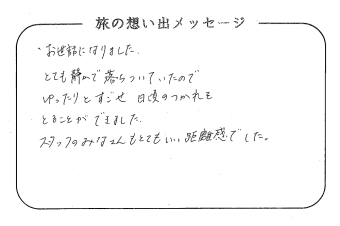 旅の想い出メッセージ
・お世話になりました.
とても静かで落ちついていたので
ゆったりとすごせ 日頃のつかれも
とることができました.
スタッフのみなさんもとてもいい距離感でした。